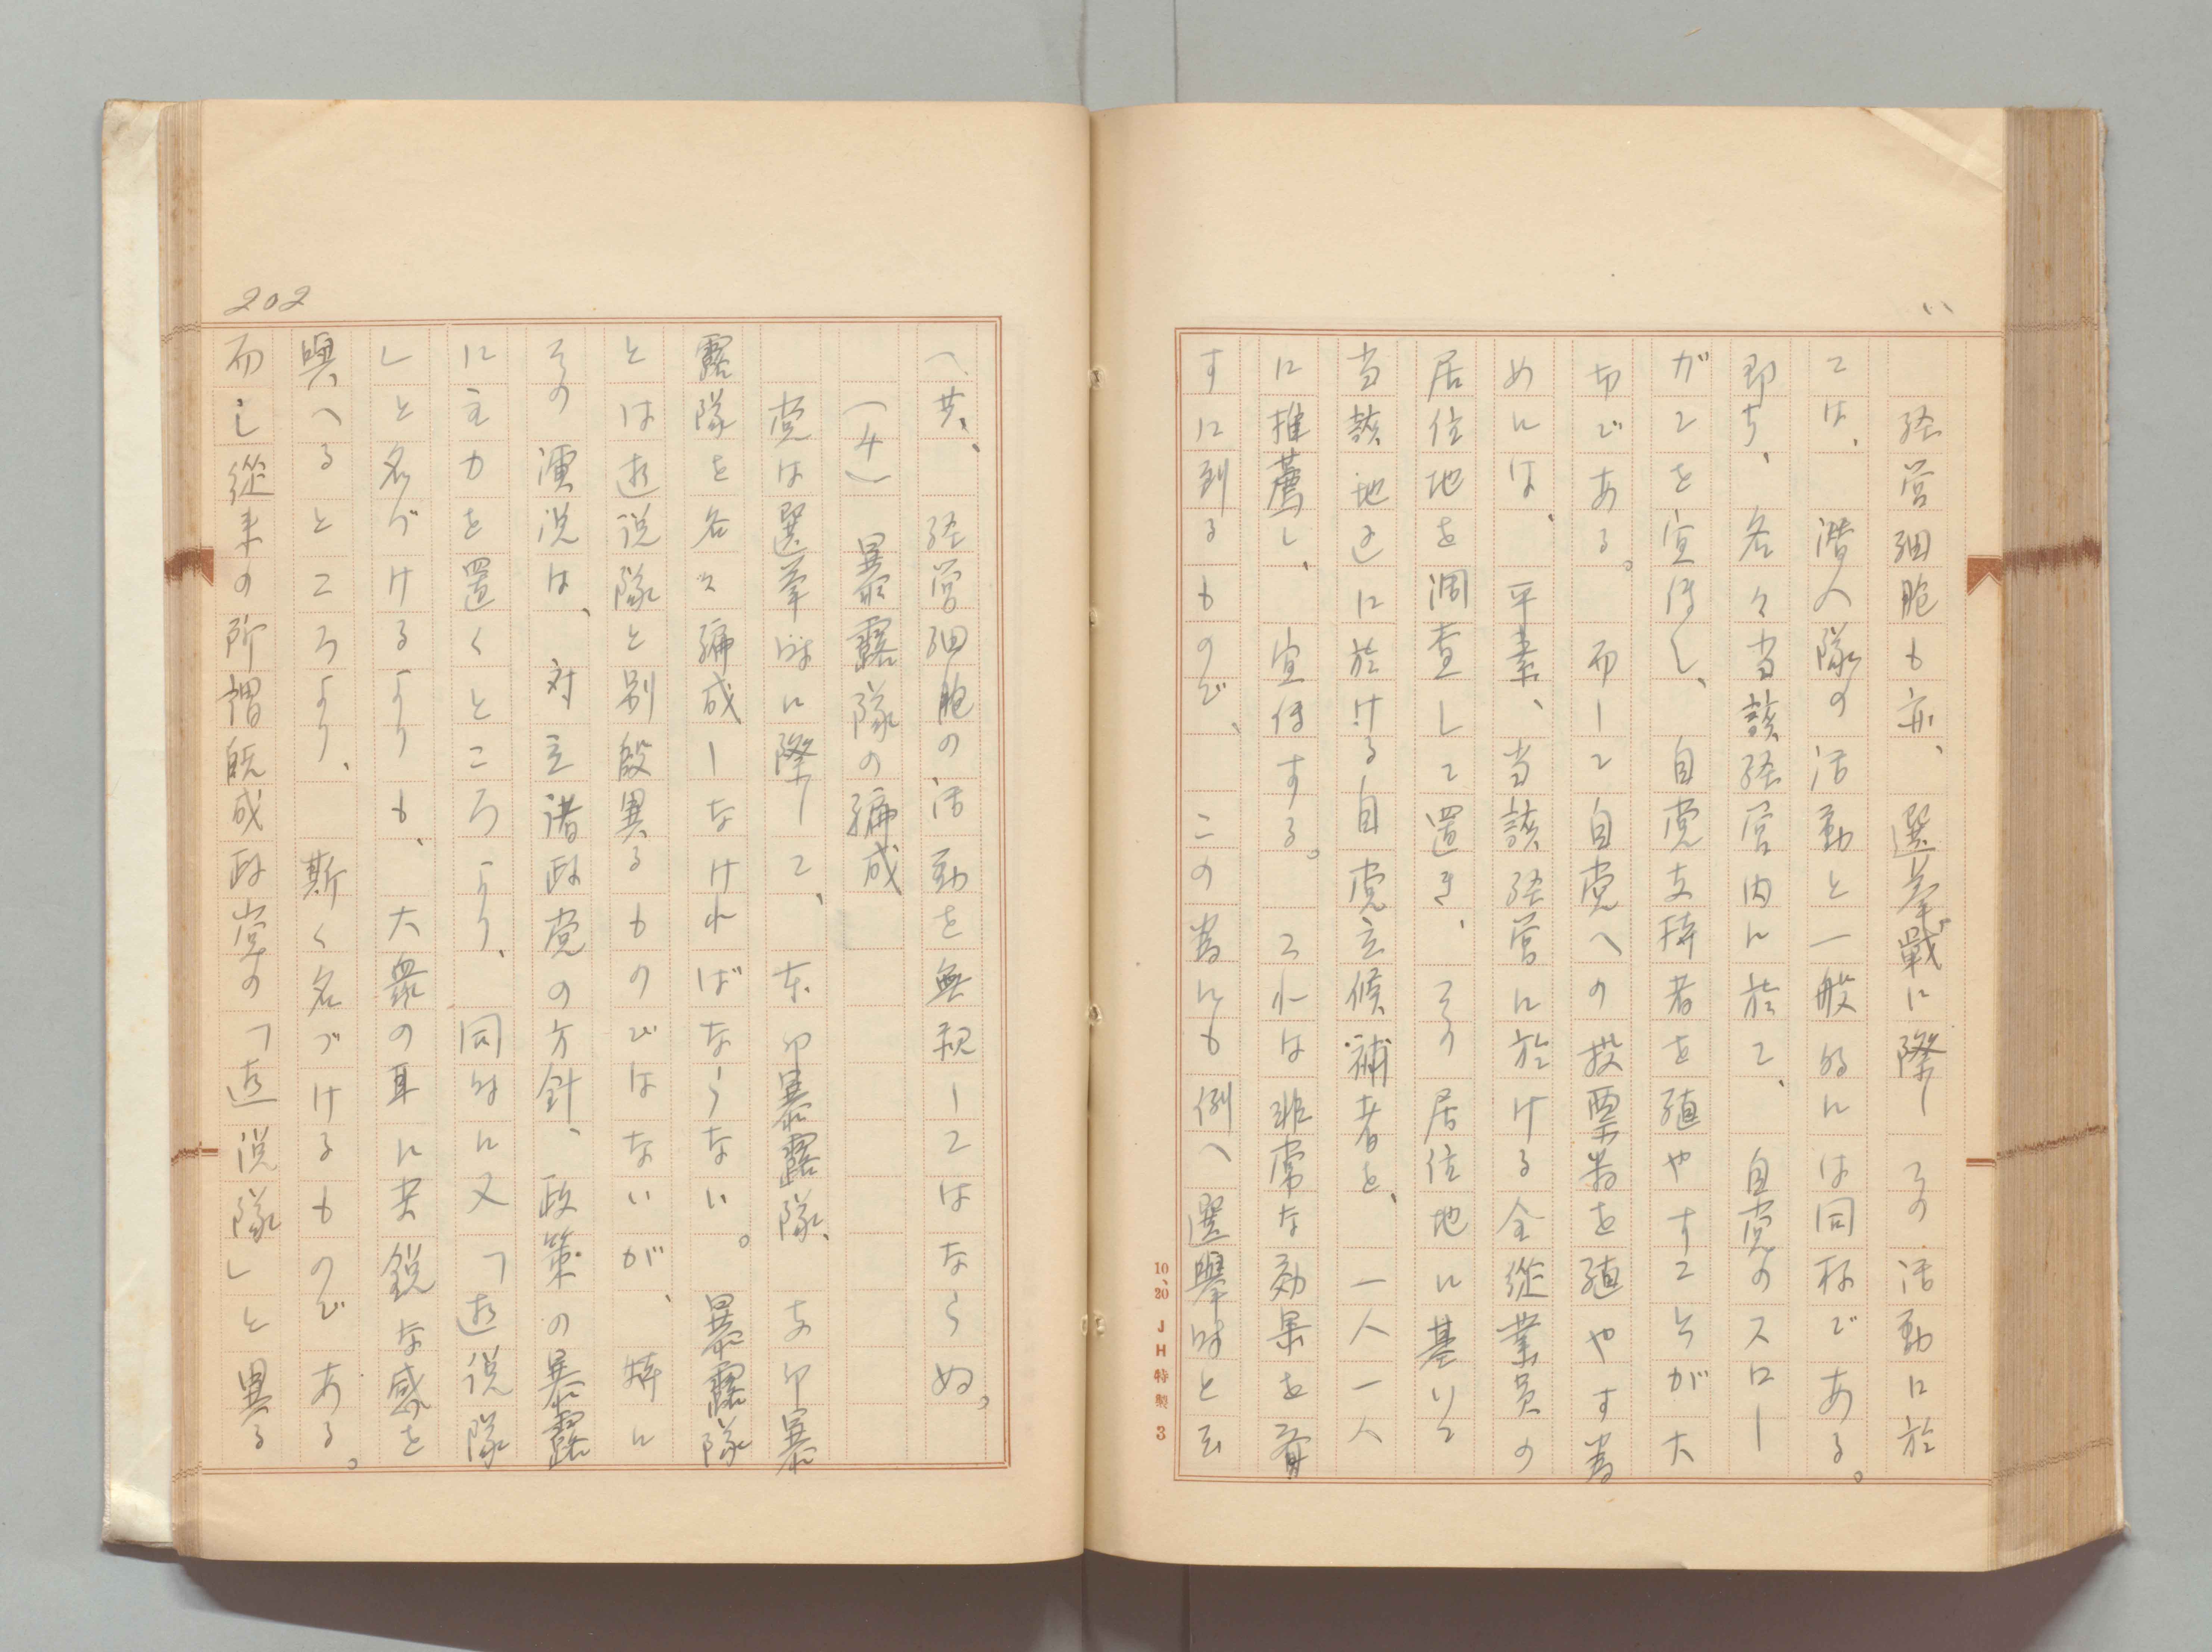 経営細胞も亦、選挙戦に際しその活動に於
ては、潜入隊の活動と一般的には同様である。
即ち、各々当該経営内に於て、自党のスロー
ガンを宣伝し、自党支持者を殖やすことが大
切である。而して自党への投票者を殖やす為
めには、平素、当該経営に於ける全従業員の
居住地を調査して置き、その居住地に基いて
当該地区に於ける自党立候補者を、一人一人
に推薦し、宣伝する。これは非常な効果を齎
すに到るもので、この為にも例へ選挙時と云
10、20 JH特製 3
202
へ共、経営細胞の活動を無視してはならぬ。
(4) 暴露隊の編成
党は選挙時に際して、本部暴露隊、支部暴
露隊を各々編成しなければならない。暴露隊
とは遊説隊と別段異るものではないが、特に
その演説は、対立諸政党の方針、政策の暴露
に主力を置くところより、同時に又「遊説隊
」と名づけるよりも、大衆の耳に尖鋭な感を
与へるところより、斯く名づけるものである。
而し従来の所謂既成政党の「遊説隊」と異る